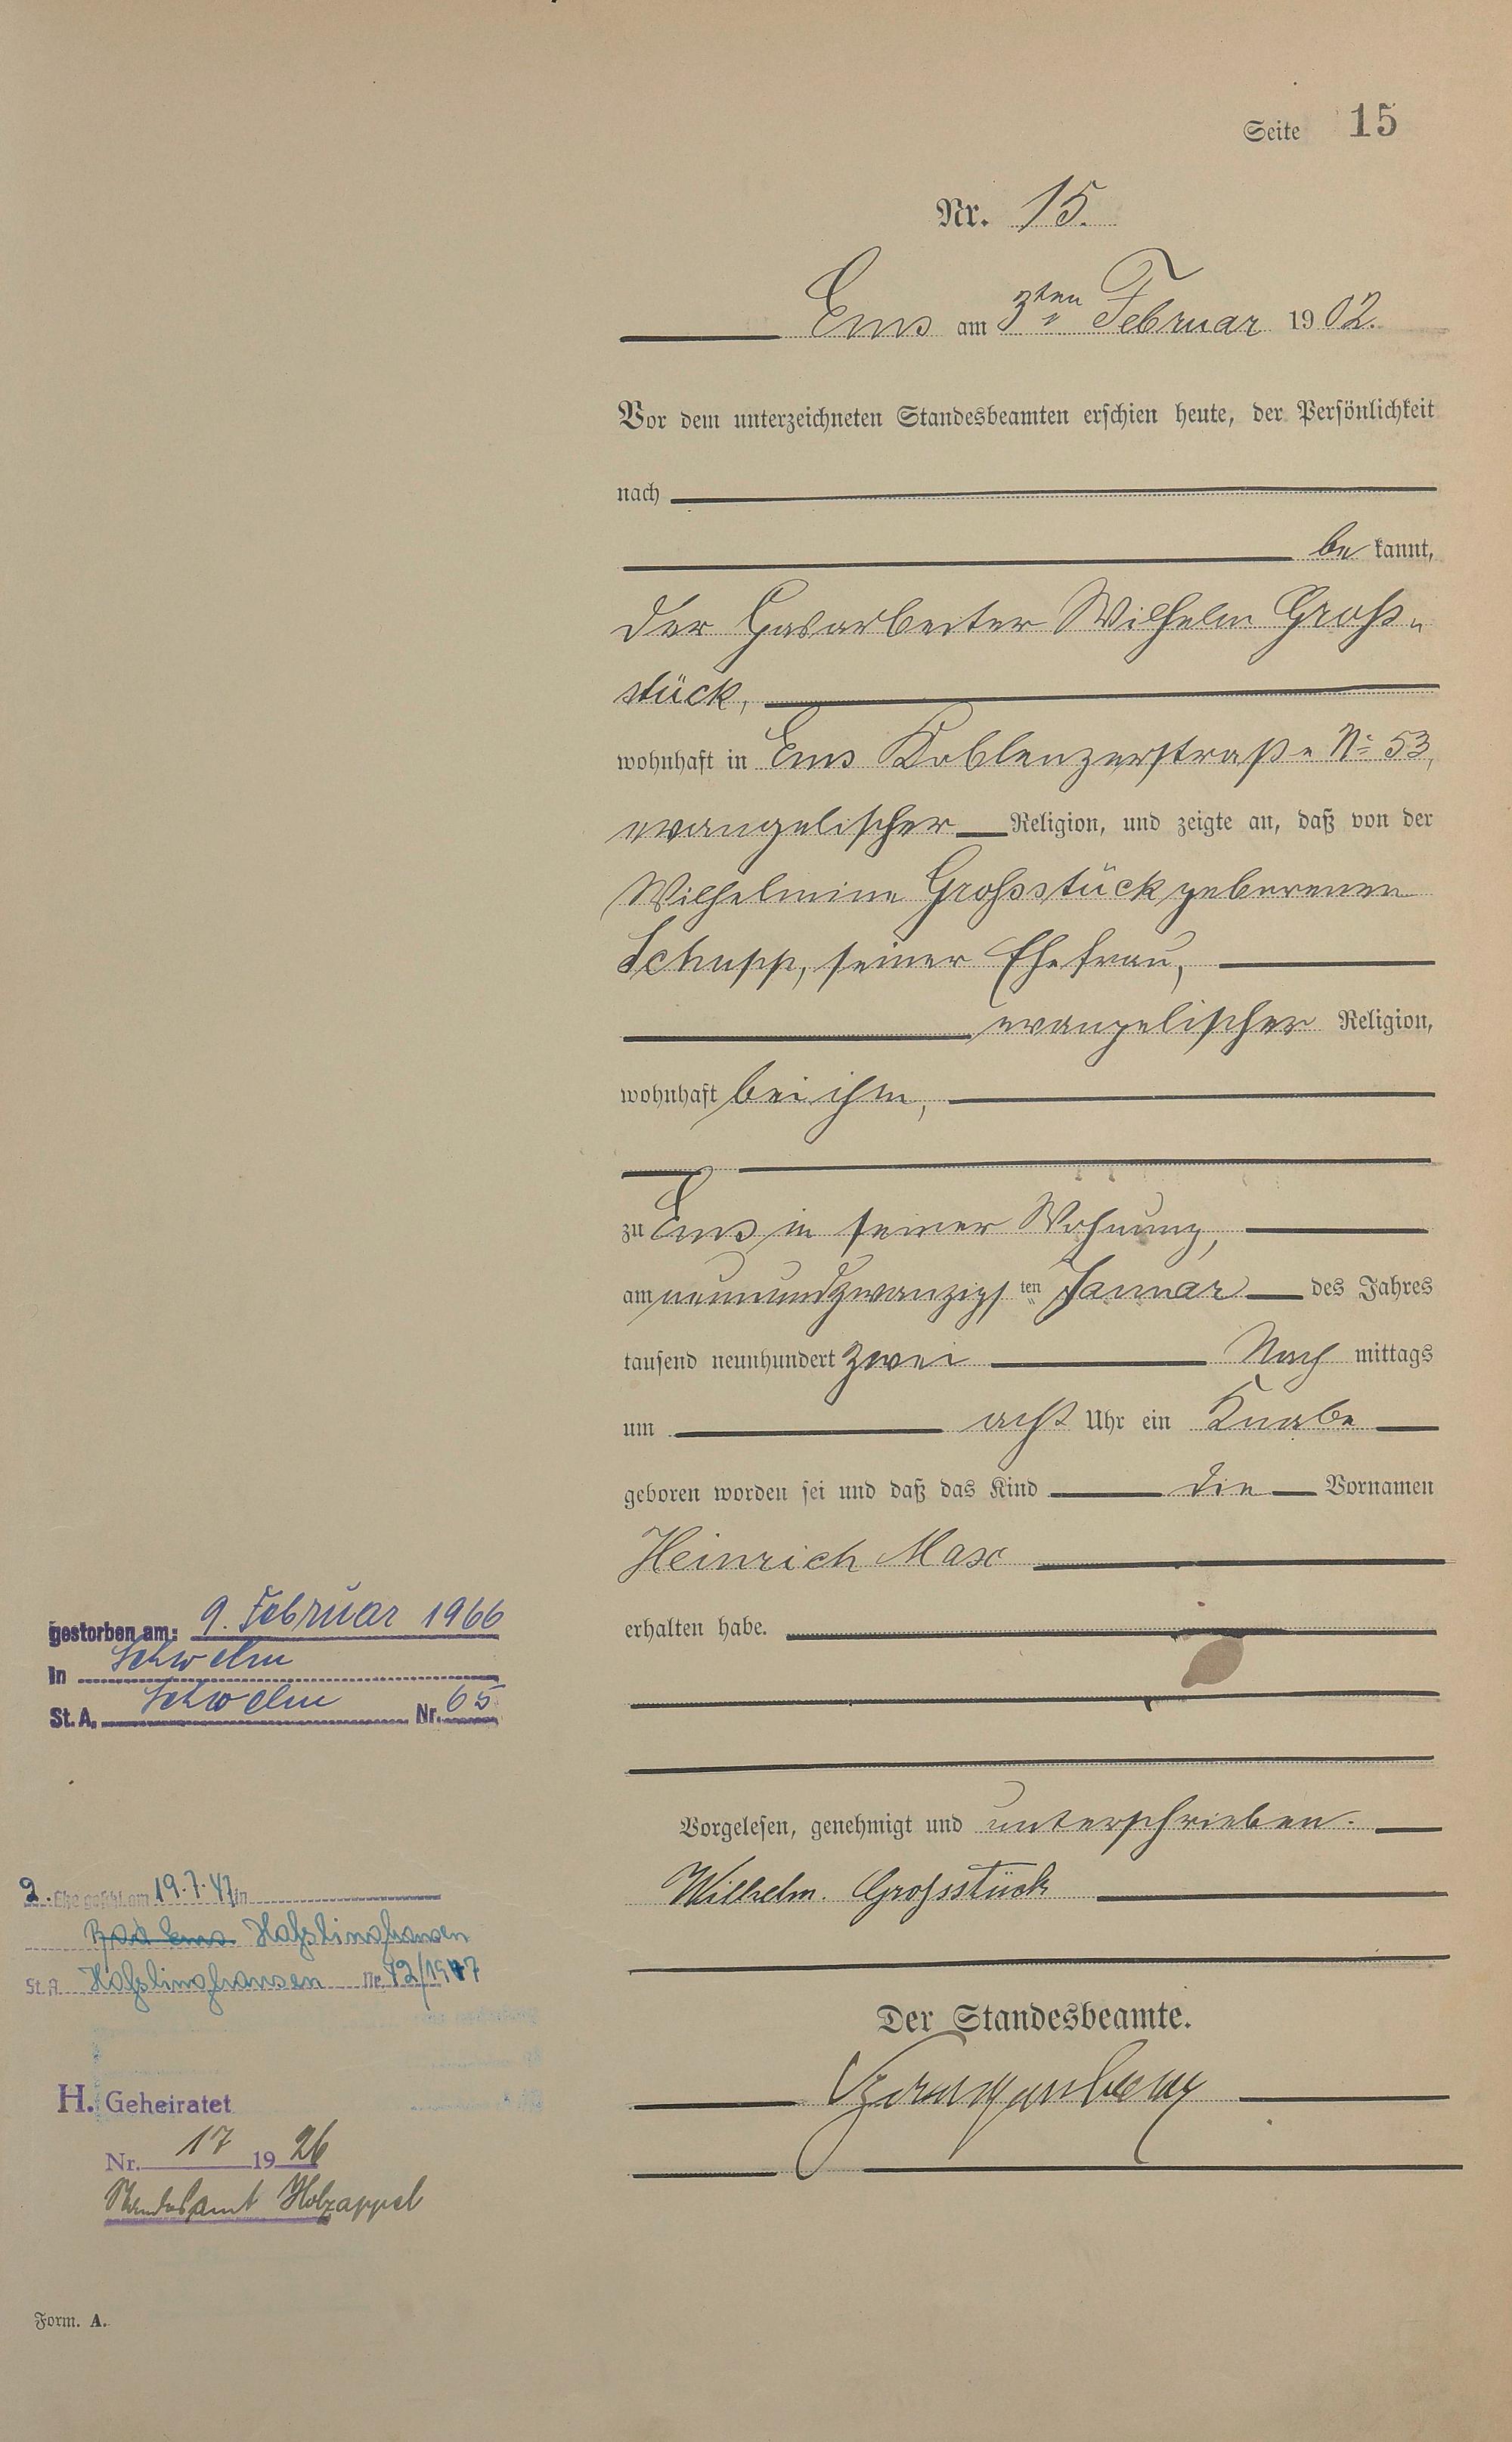 Seite 15
Nr. 15.
Ems am 3ten Februar 1902.
Vor dem unterzeichneten Standesbeamten erschien heute, der Persönlichkeit
nach
be kannt,
der Gasarbeiter Wilhelm Groß-
stück,
wohnhaft in Ems Koblenzerstraße No 53,
evangelischer Religion, und zeigte an, daß von der
Wilhelmine Großstück geborenen
Schupp, seiner Ehefrau,
evangelischer Religion,
wohnhaft bei ihm,
zu Ems in seiner Wohnung,
am neunundzwanzigsten Januar des Jahres
tausend neunhundert zwei Nach mittags
um acht Uhr ein Knabe
geboren worden sei und daß das Kind die Vornamen
Heinrich Max
erhalten habe.
Vorgelesen, genehmigt und unterschrieben.
Wilhelm. Grossstück
Der Standesbeamte.
gestorben am: 9. Februar 1966
in Schwelm
St. A. Schwelm Nr. 65
2. Ehe geschl. am 19.7.47 in
Bad Ems Haßlinghausen
St. A. Haßlinghausen Nr. 42/1947
H. Geheiratet
Nr. 17 1926
Standesamt Holzappel
Form. A.